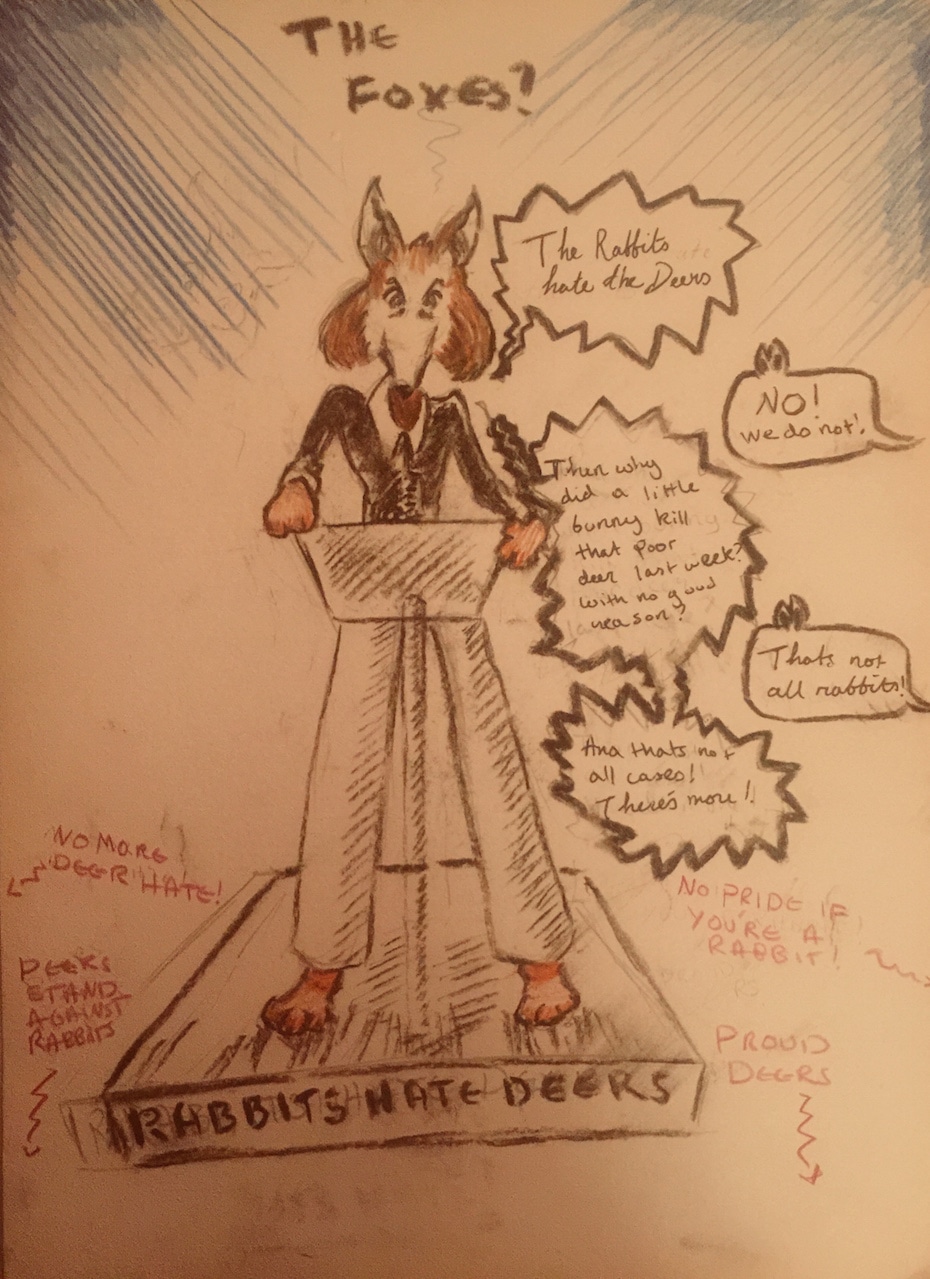 THE
FOXES?
The Rabbits
hate the Deers
NO!
we do not!
Then why
did a little
bunny kill
that poor
deer last week?
with no good
reason?
Thats not
all rabbits!
Ana thats not
all cases!
There's more!!
NO MORE
DEER HATE!
NO PRIDE IF
YOU'RE A
RABBIT!
DEERS
STAND
AGAINST
RABBITS
PROUD
DEERS
RABBITS HATE DEERS